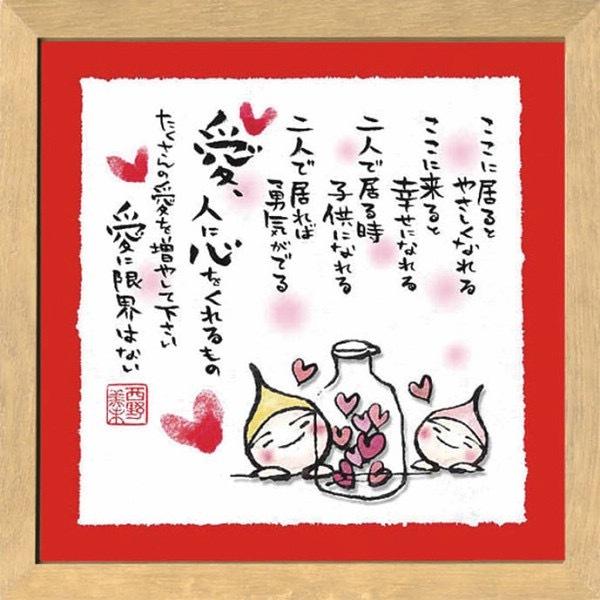 ここに居ると
やさしくなれる
ここに来ると
幸せになれる
二人で居る時
子供になれる
二人で居れば
勇気がでる
愛、人に心をくれるもの
たくさんの愛を増やして下さい
愛に限界はない
西野
美未